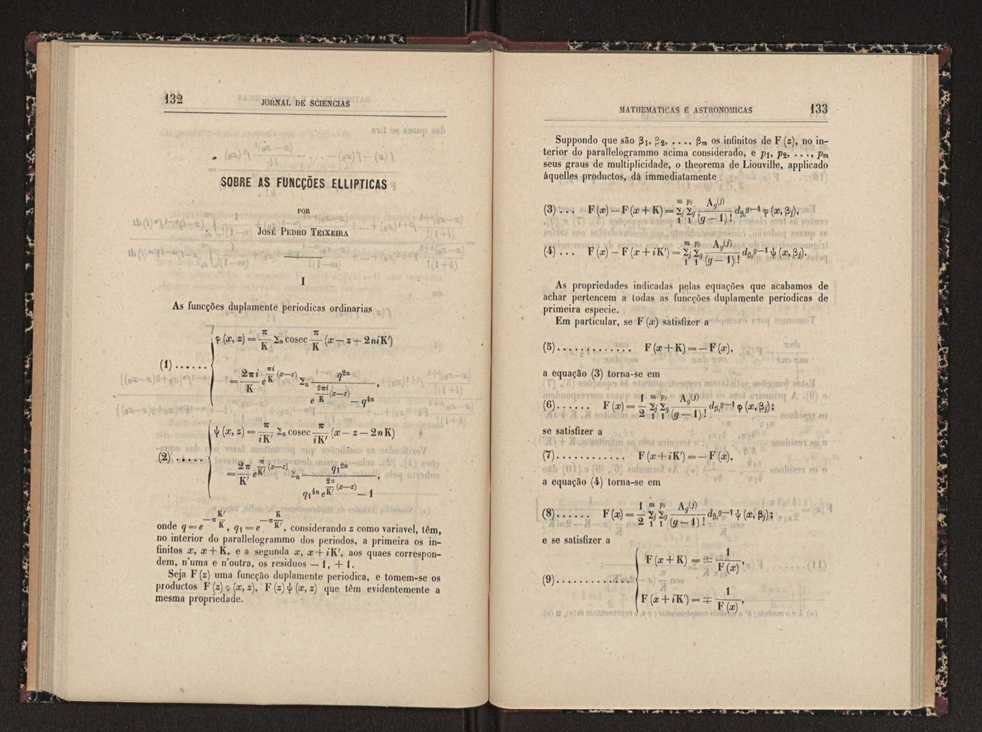 132
JORNAL DE SCIENCIAS
SOBRE AS FUNCÇÕES ELLIPTICAS
POR
JOSÉ PEDRO TEIXEIRA
I
As funcções duplamente periodicas ordinarias
(1) ...... φ (x, z) = π/K Σₙ cosec π/K (x − z + 2niK')
= 2πi/K e^{πi/K (x−z)} Σₙ q²ⁿ / (e^{2πi/K (x−z)} − q⁴ⁿ),
(2) ...... ψ (x, z) = π/iK' Σₙ cosec π/iK' (x − z − 2nK)
= 2π/K' e^{π/K' (x−z)} Σₙ q₁²ⁿ / (q₁⁴ⁿ e^{2π/K' (x−z)} − 1
onde q = e^{−π K'/K}, q₁ = e^{−π K/K'}, considerando z como variavel, têm,
no interior do parallelogrammo dos periodos, a primeira os in-
finitos x, x + K, e a segunda x, x + iK', aos quaes correspon-
dem, n'uma e n'outra, os residuos − 1, + 1.
Seja F (z) uma funcção duplamente periodica, e tomem-se os
productos F (z) φ (x, z), F (z) ψ (x, z) que têm evidentemente a
mesma propriedade.
MATHEMATICAS E ASTRONOMICAS
133
Suppondo que são β₁, β₂, ..., βₘ os infinitos de F (z), no in-
terior do parallelogrammo acima considerado, e p₁, p₂, ..., pₘ
seus graus de multiplicidade, o theorema de Liouville, applicado
áquelles productos, dá immediatamente
(3) ... F (x) − F (x + K) = Σⱼ₁^m Σ_g₁^{pⱼ} A_g^{(j)}/(g − 1)! d_{βⱼ}^{g−1} φ (x, βⱼ),
(4) ... F (x) − F (x + iK') = Σⱼ₁^m Σ_g₁^{pⱼ} A_g^{(j)}/(g − 1)! d_{βⱼ}^{g−1} ψ (x, βⱼ).
As propriedades indicadas pelas equações que acabamos de
achar pertencem a todas as funcções duplamente periodicas de
primeira especie.
Em particular, se F (x) satisfizer a
(5) ............ F (x + K) = − F (x),
a equação (3) torna-se em
(6) ...... F (x) = 1/2 Σⱼ₁^m Σ_g₁^{pⱼ} A_g^{(j)}/(g − 1)! d_{βⱼ}^{g−1} φ (x, βⱼ);
se satisfizer a
(7) ............ F (x + iK') = − F (x),
a equação (4) torna-se em
(8) ...... F (x) = 1/2 Σⱼ₁^m Σ_g₁^{pⱼ} A_g^{(j)}/(g − 1)! d_{βⱼ}^{g−1} ψ (x, βⱼ);
e se satisfizer a
(9) ............ F (x + K) = ∓ 1/F (x),
F (x + iK') = ∓ 1/F (x),